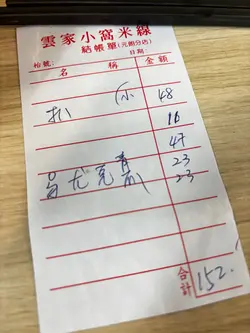 雲家小窩米線
結帳單(元朗分店)
枱號: 日期
名 稱 金額
扒 小 48
16
47
23
23
合計 152.